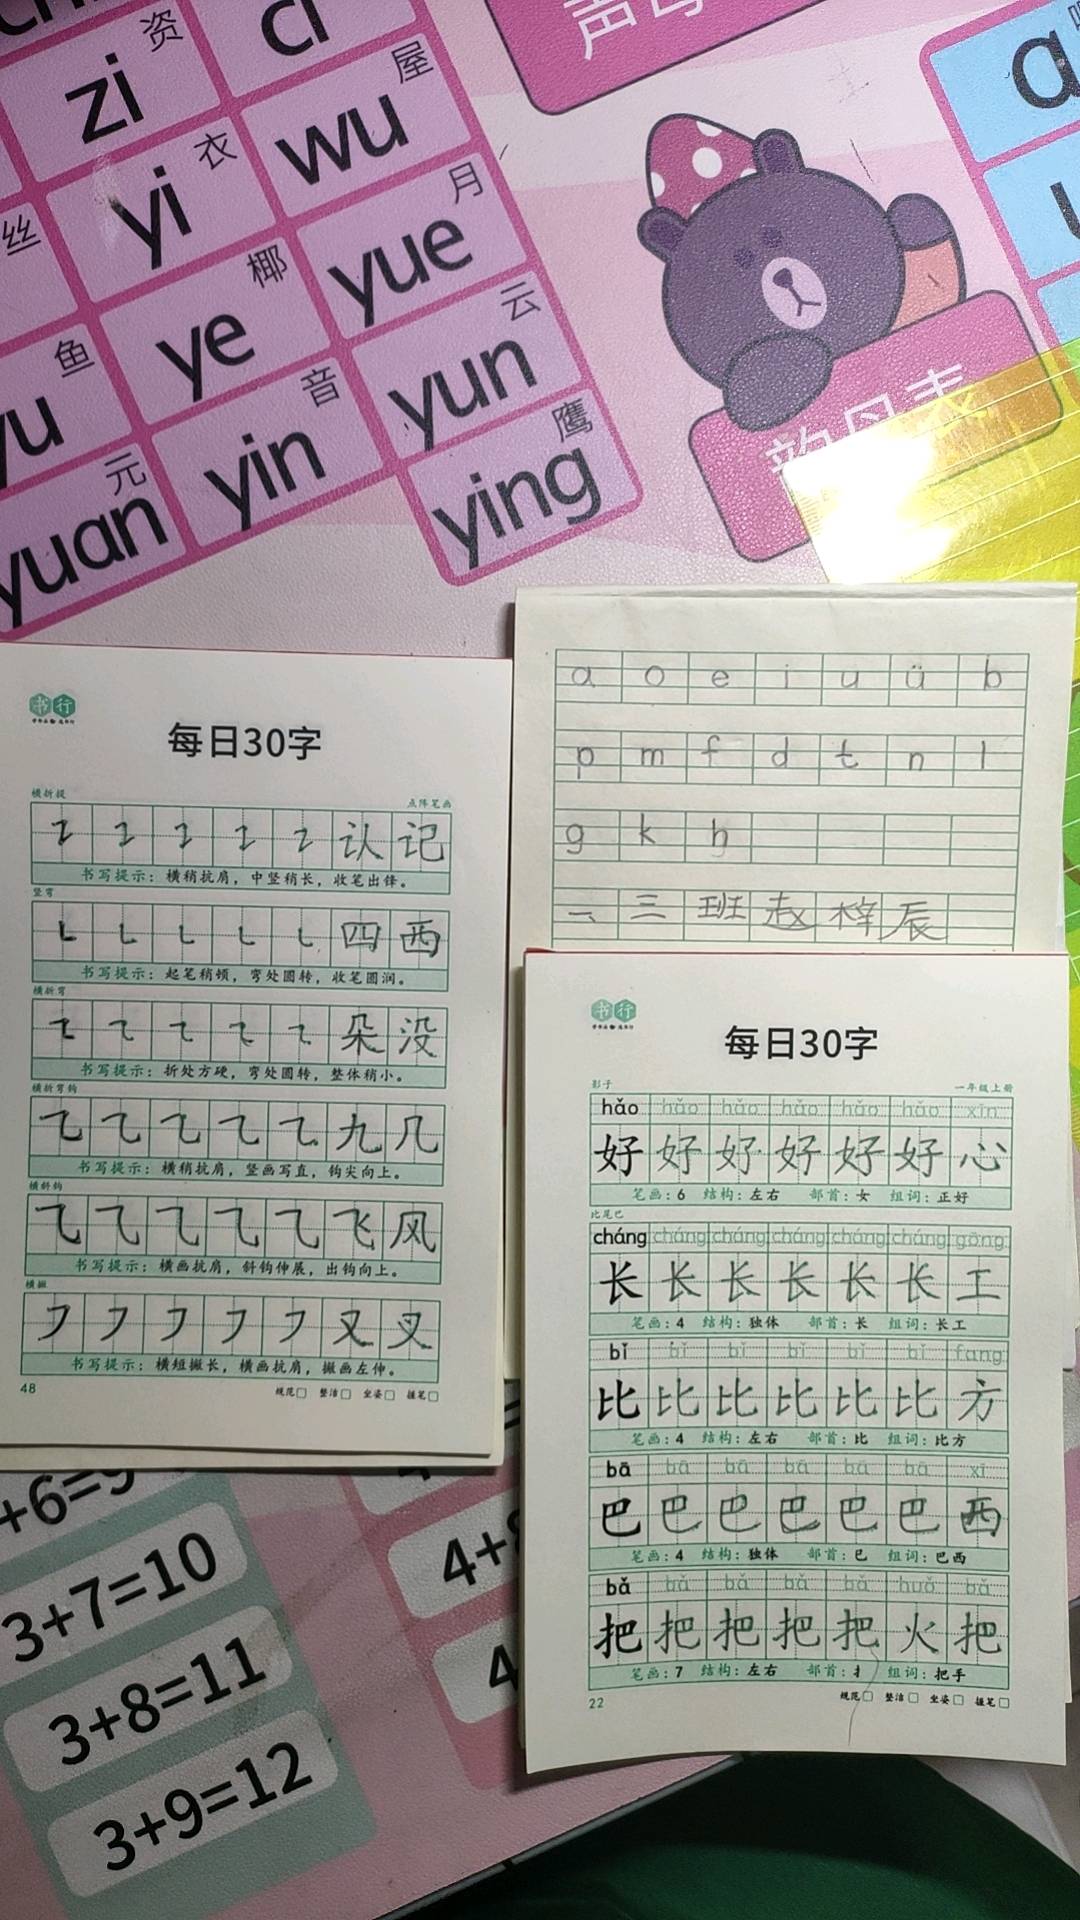 资
zi
ci
衣
yi
屋
wu
丝
椰
ye
月
yue
鱼
yu
音
yin
云
yun
元
yuan
鹰
ying
声母
韵母表
a o e i u ü b
p m f d t n l
g k h
一、三班赵梓辰
书行
每日30字
横折提 点阵笔画
认 记
书写提示：横稍抗肩，中竖稍长，收笔出锋。
竖弯
四 西
书写提示：起笔稍顿，弯处圆转，收笔圆润。
横折弯
朵 没
书写提示：折处方硬，弯处圆转，整体稍小。
横折弯钩
九 几
书写提示：横稍抗肩，竖画写直，钩尖向上。
横斜钩
飞 风
书写提示：横画抗肩，斜钩伸展，出钩向上。
横撇
又 叉
书写提示：横短撇长，横画抗肩，撇画左伸。
48 规范 整洁 坐姿 握笔
书行
每日30字
影子 一年级上册
hǎo hǎo hǎo hǎo hǎo hǎo xīn
好 好 好 好 好 好 心
笔画：6 结构：左右 部首：女 组词：正好
比尾巴
cháng cháng cháng cháng cháng cháng gōng
长 长 长 长 长 长 工
笔画：4 结构：独体 部首：长 组词：长工
bǐ bǐ bǐ bǐ bǐ bǐ fang
比 比 比 比 比 比 方
笔画：4 结构：左右 部首：比 组词：比方
bā bā bā bā bā bā xī
巴 巴 巴 巴 巴 巴 西
笔画：4 结构：独体 部首：巳 组词：巴西
bǎ bǎ bǎ bǎ bǎ huǒ bǎ
把 把 把 把 把 火 把
笔画：7 结构：左右 部首：扌 组词：把手
22 规范 整洁 坐姿 握笔
+6=9
3+7=10
3+8=11
3+9=12
4+8
4